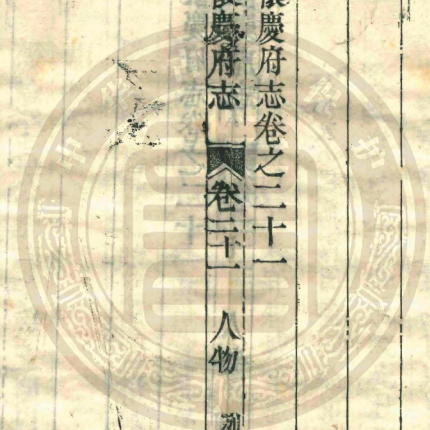 懷慶府志卷之二十一
慶府志
卷二十一
人物